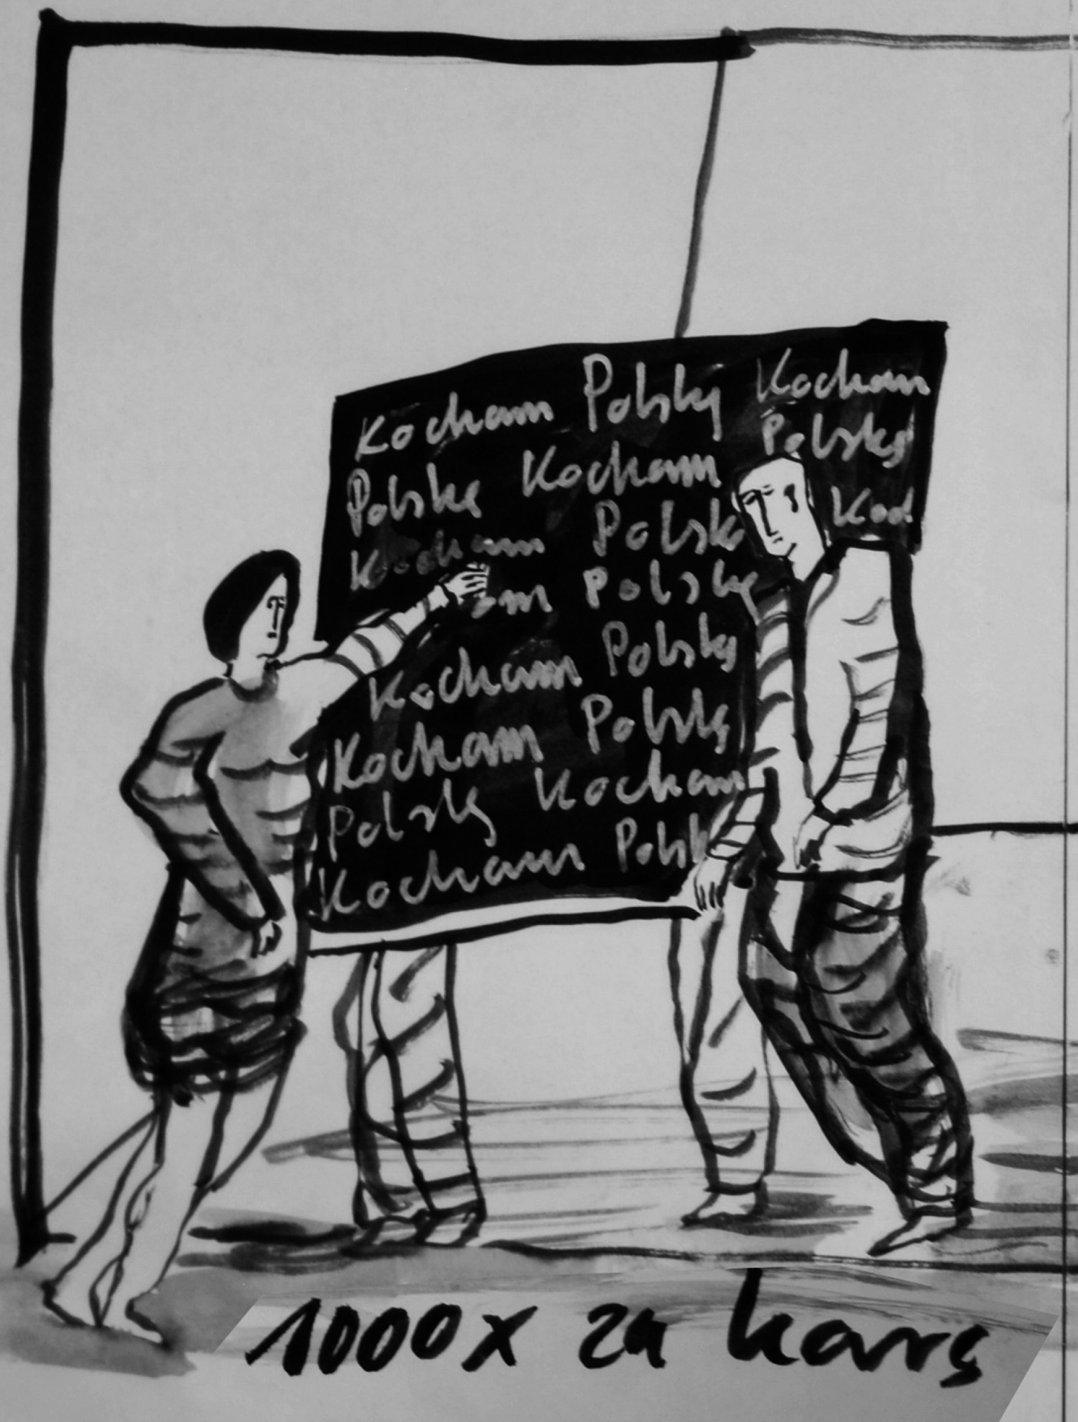 Kocham Polskę Kocham
Polskę Kocham Polskę
Kocham Polsk Koch
am Polskę
Kocham Polskę
Kocham Polskę
Polskę Kocham
Kocham Polsk
1000x za karę